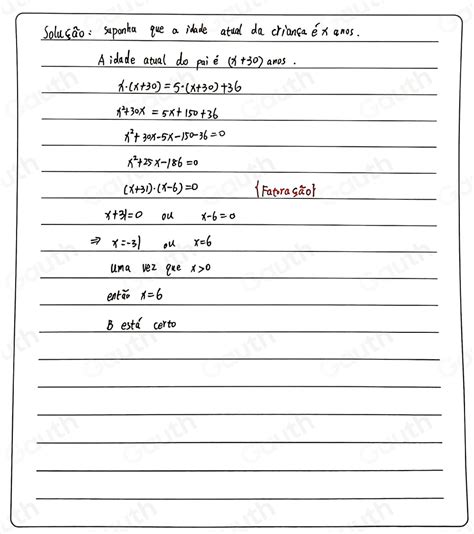 Solução: Suponha que a idade atual da criança é x anos.
A idade atual do pai é (x+30) anos.
x·(x+30) = 5·(x+30)+36
x²+30x = 5x+150+36
x²+30x-5x-150-36=0
x²+25x-186=0
(x+31)·(x-6)=0 {Fatoração}
x+31=0 ou x-6=0
⇒ x=-31 ou x=6
Uma vez que x>0
então x=6
B está certo